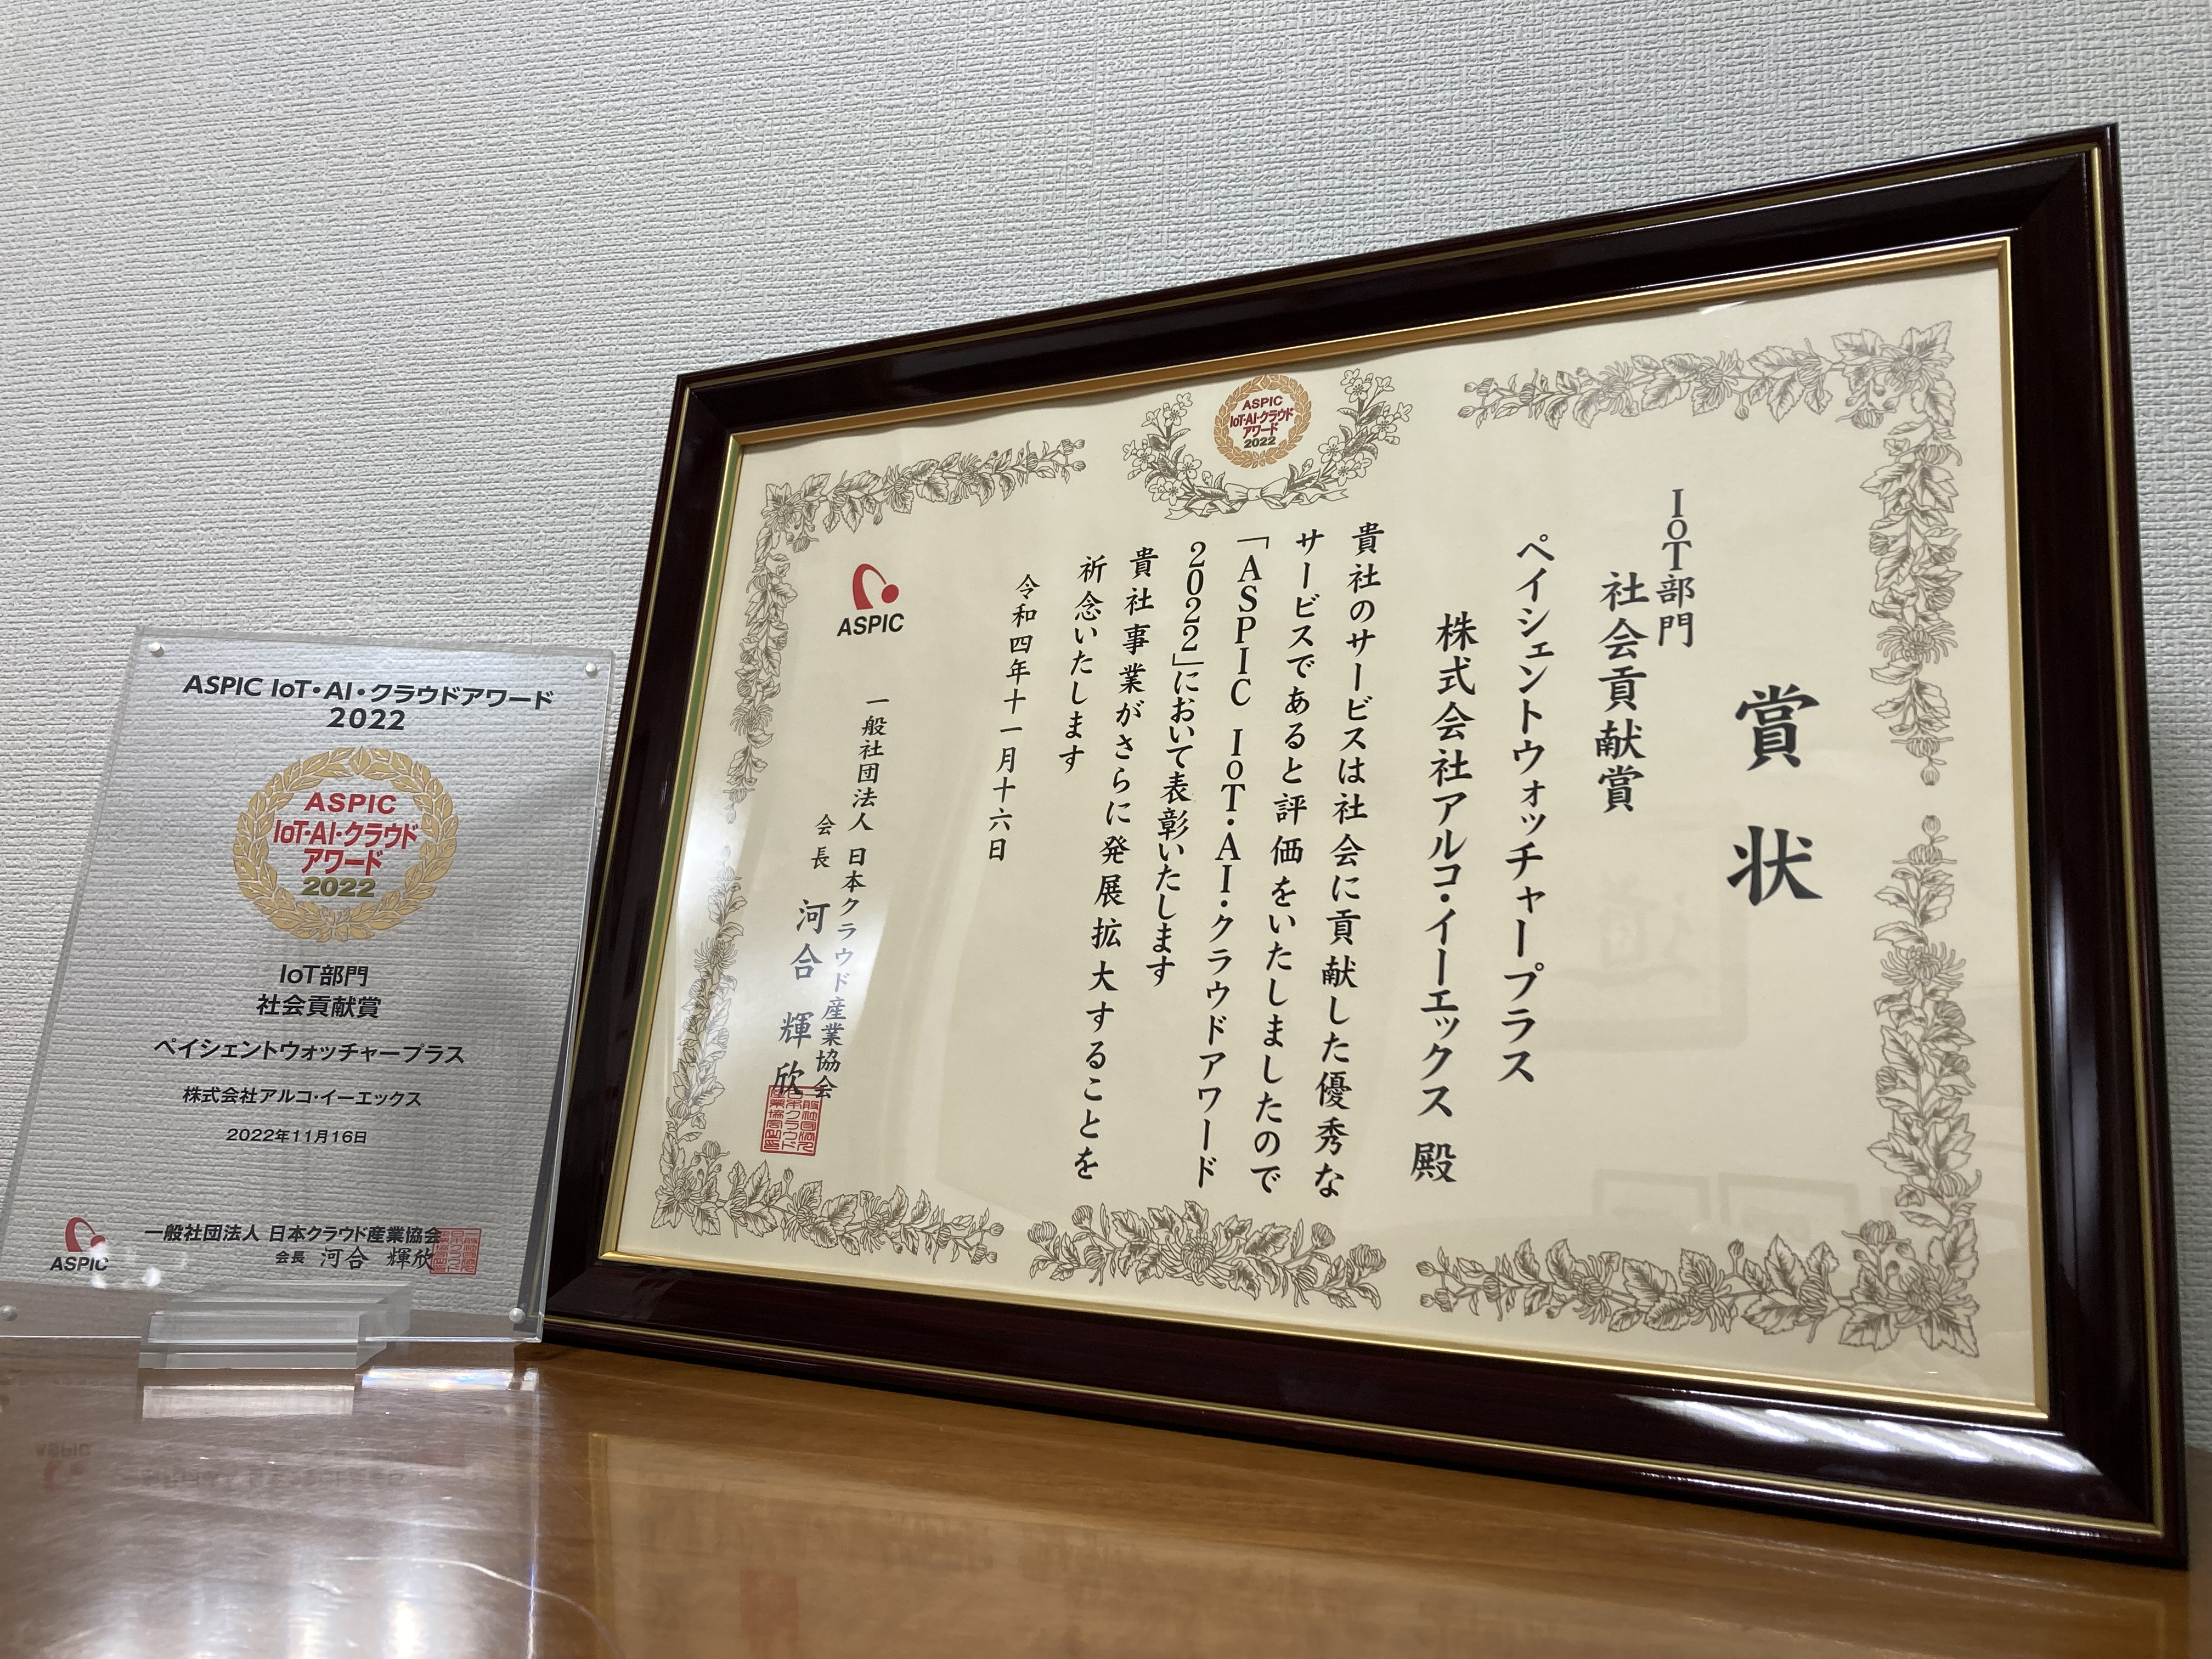 ASPIC IoT・AI・クラウドアワード
2022
ASPIC
IoT・AI・クラウド
アワード
2022
IoT部門
社会貢献賞
ペイシェントウォッチャープラス
株式会社アルコ・イーエックス
2022年11月16日
ASPIC
一般社団法人 日本クラウド産業協会
会長 河合 輝欣
ASPIC
IoT・AI・クラウド
アワード
2022
賞状
IoT部門
社会貢献賞
ペイシェントウォッチャープラス
株式会社アルコ・イーエックス 殿
貴社のサービスは社会に貢献した優秀な
サービスであると評価をいたしましたので
「ASPIC IoT・AI・クラウドアワード
2022」において表彰いたします
貴社事業がさらに発展拡大することを
祈念いたします
令和四年十一月十六日
ASPIC
一般社団法人 日本クラウド産業協会
会長 河合 輝欣